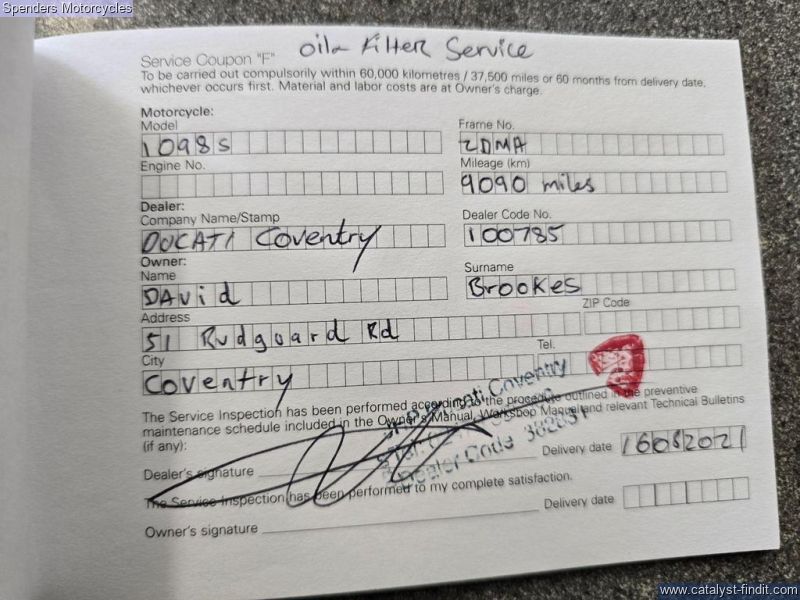 Spenders Motorcycles
Service Coupon "F" Oil & Filter Service
To be carried out compulsorily within 60,000 kilometres / 37,500 miles or 60 months from delivery date,
whichever occurs first. Material and labor costs are at Owner's charge.
Motorcycle:
Model
1098s
Frame No.
ZDMA
Engine No.
Mileage (km)
9090 miles
Dealer:
Company Name/Stamp
DUCATI Coventry
Dealer Code No.
100785
Owner:
Name
DAvid
Surname
Brookes
Address
51 Rudguard Rd
ZIP Code
City
Coventry
Tel.
Ducati Coventry
Dealer Code
The Service Inspection has been performed according to the procedure outlined in the preventive
maintenance schedule included in the Owner's Manual, Workshop Manual and relevant Technical Bulletins
(if any):
Dealer's signature
Delivery date 16082021
The Service Inspection has been performed to my complete satisfaction.
Delivery date
Owner's signature
www.catalyst-findit.com